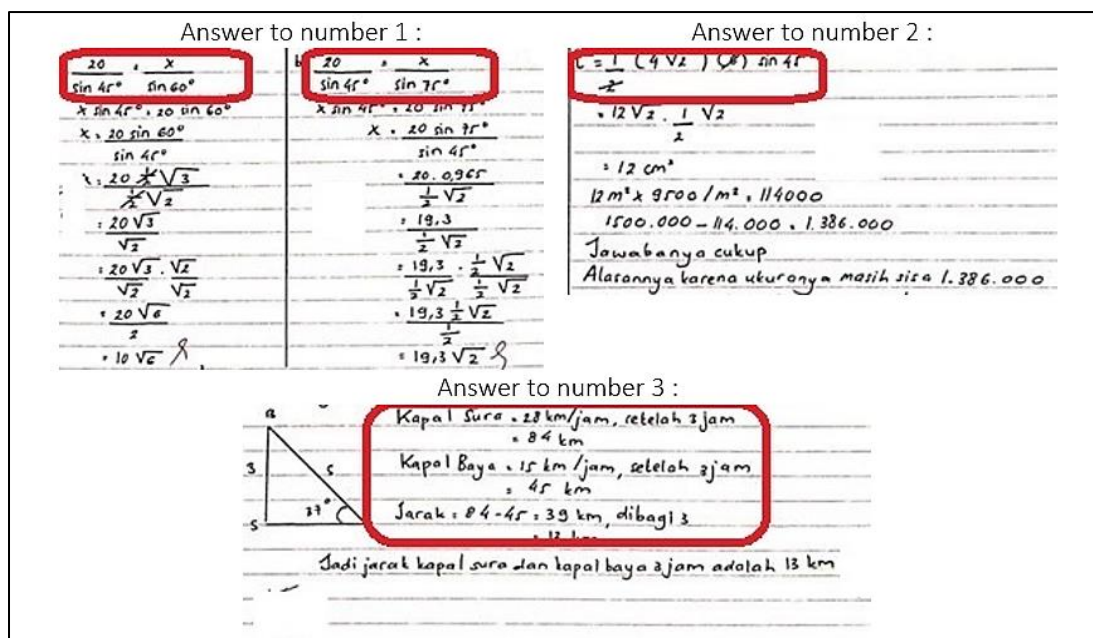 Answer to number 1 :
20/sin 45° = x/sin 60°
x sin 45° = 20 sin 60°
x = 20 sin 60°/sin 45°
x = 20 ½ √3/½ √2
= 20 √3/√2
= 20 √3/√2 . √2/√2
= 20 √6/2
= 10 √6
b 20/sin 45° = x/sin 75°
x sin 45° = 20 sin 75°
x = 20 sin 75°/sin 45°
= 20 . 0,965/½ √2
= 19,3/½ √2
= 19,3/½ √2 . ½ √2/½ √2
= 19,3 ½ √2/½
= 19,3 √2
Answer to number 2 :
L = 1/2 (4 √2) (6) sin 45
= 12 √2 . 1/2 √2
= 12 cm²
12 m² x 9500/m² = 114000
1500.000 - 114.000 = 1.386.000
Jawabanya cukup
Alasannya karena ukuranya masih sisa 1.386.000
Answer to number 3 :
Kapal Sura = 28 km/jam, setelah 3 jam
= 84 km
Kapal Baya = 15 km/jam, setelah 3 jam
= 45 km
Jarak = 84 - 45 = 39 km, dibagi 3
B
3
5
37°
S
Jadi jarak kapal sura dan kapal baya 3 jam adalah 13 km